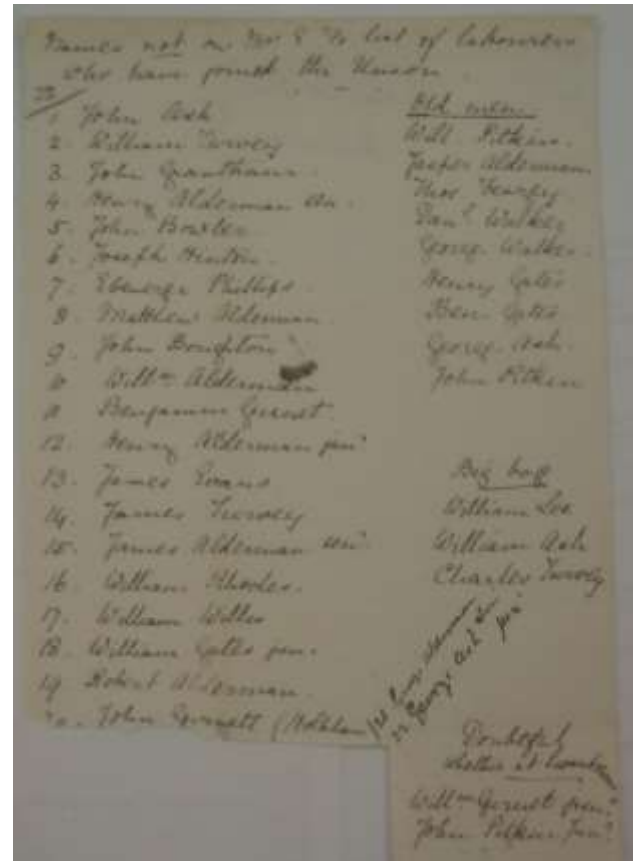 Names not on Mr E 's list of labourers
who have joined the Union.
1 John Ash
2. William Turvey
3. John Grantham
4. Henry Alderman sen.
5. John Bowler
6. Joseph Hinton
7. Ebenezer Phillips
8. Matthew Alderman
9. John Boughton
10 Willm Alderman
11 Benjamin Gurnet.
12. Henry Alderman junr
13. James Evans
14. James Turvey
15. James Alderman senr
16. William Rhodes.
17. William Willes
18. William Gates jun.
19 Robert Alderman
20. John Gurnett
21 Alderman
22 George Ash junr
Old men
Will. Pitkin.
Jasper Alderman
Thos Turvey.
Danl Walker
George Walker.
Henry Gates
Ben. Gates
George Ash.
John Pitkin
Big boys
William Lee
William Ash
Charles Turvey
Doubtful
Willm Gurnet junr
John Pitkin Junr